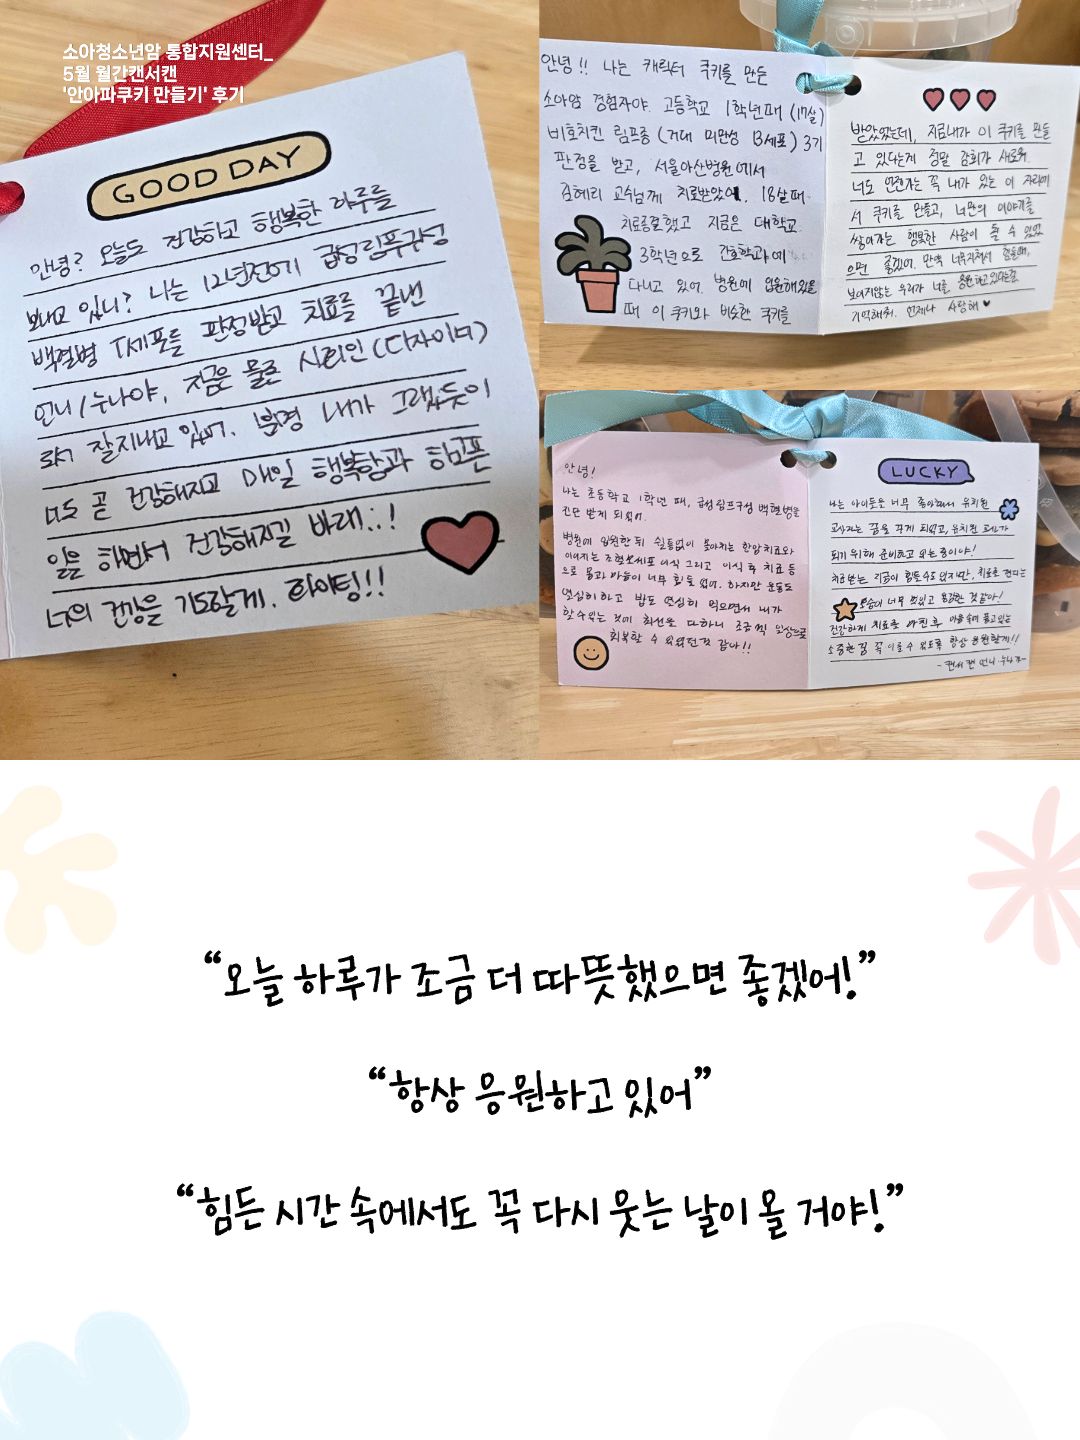 소아청소년암 통합지원센터_
5월 월간캔서캔
'안아파쿠키 만들기' 후기
GOOD DAY
안녕? 오늘도 건강하고 행복한 하루를
보내고 있니? 나는 12년전에 급성림프구성
백혈병 T세포를 판정받고 치료를 끝낸
언니/누나야, 지금은 물론 시리인(디자이너)
로서 잘지내고 있어. 분명 내가 그랬듯이
너도 곧 건강해지고 매일 행복함과 하고픈
일을 하면서 건강해지길 바래..!
너의 건강을 기도할게. 화이팅!!
안녕!! 나는 캐릭터 쿠키를 만든
소아암 경험자야. 고등학교 1학년때 (17살)
비호지킨 림프종 (거대 미만성 B세포) 3기
판정을 받고, 서울아산병원에서
김혜리 교수님께 치료받았어. 18살때
치료종결했고 지금은 대학교
3학년으로 간호학과에
다니고 있어. 병원에 입원해있을
때 이 쿠키와 비슷한 쿠키를
받았었는데, 지금내가 이 쿠키를 만들
고 있다는게 정말 감회가 새로워.
너도 언젠가는 꼭 내가 있는 이 자리에
서 쿠키를 만들고, 너만의 이야기를
쌓아가는 행복한 사람이 될 수 있었
으면 좋겠어. 만약 너무지쳐서 힘들때,
보이지않는 우리가 너를 응원하고있다는걸
기억해줘. 언제나 사랑해 ♥
안녕!
나는 초등학교 1학년 때, 급성림프구성 백혈병을
진단 받게 되었어.
병원에 입원한 뒤 쉴틈없이 몰아치는 항암치료와
이어지는 조혈모세포 이식 그리고 이식 후 치료 등
으로 몸과 마음이 너무 힘들었어. 하지만 운동도
열심히 하고 밥도 열심히 먹으면서 내가
할 수 있는 것에 최선을 다하니 조금씩 일상으로
회복할 수 있었던것 같아!!
LUCKY
나는 아이들을 너무 좋아해서 유치원
교사라는 꿈을 꾸게 되었고, 유치원 교사가
되기 위해 준비하고 있는 중이야!
치료받는 지금이 힘들수도 있지만, 치료를 견디는
모습이 너무 멋있고 용감한 것 같아!
건강하게 치료를 마친 후 마음속에 품고있는
소중한 꿈 꼭 이룰 수 있도록 항상 응원할게!!
- 캔서캔 언니·누나가-
“오늘 하루가 조금 더 따뜻했으면 좋겠어!”
“항상 응원하고 있어”
“힘든 시간 속에서도 꼭 다시 웃는 날이 올 거야!”